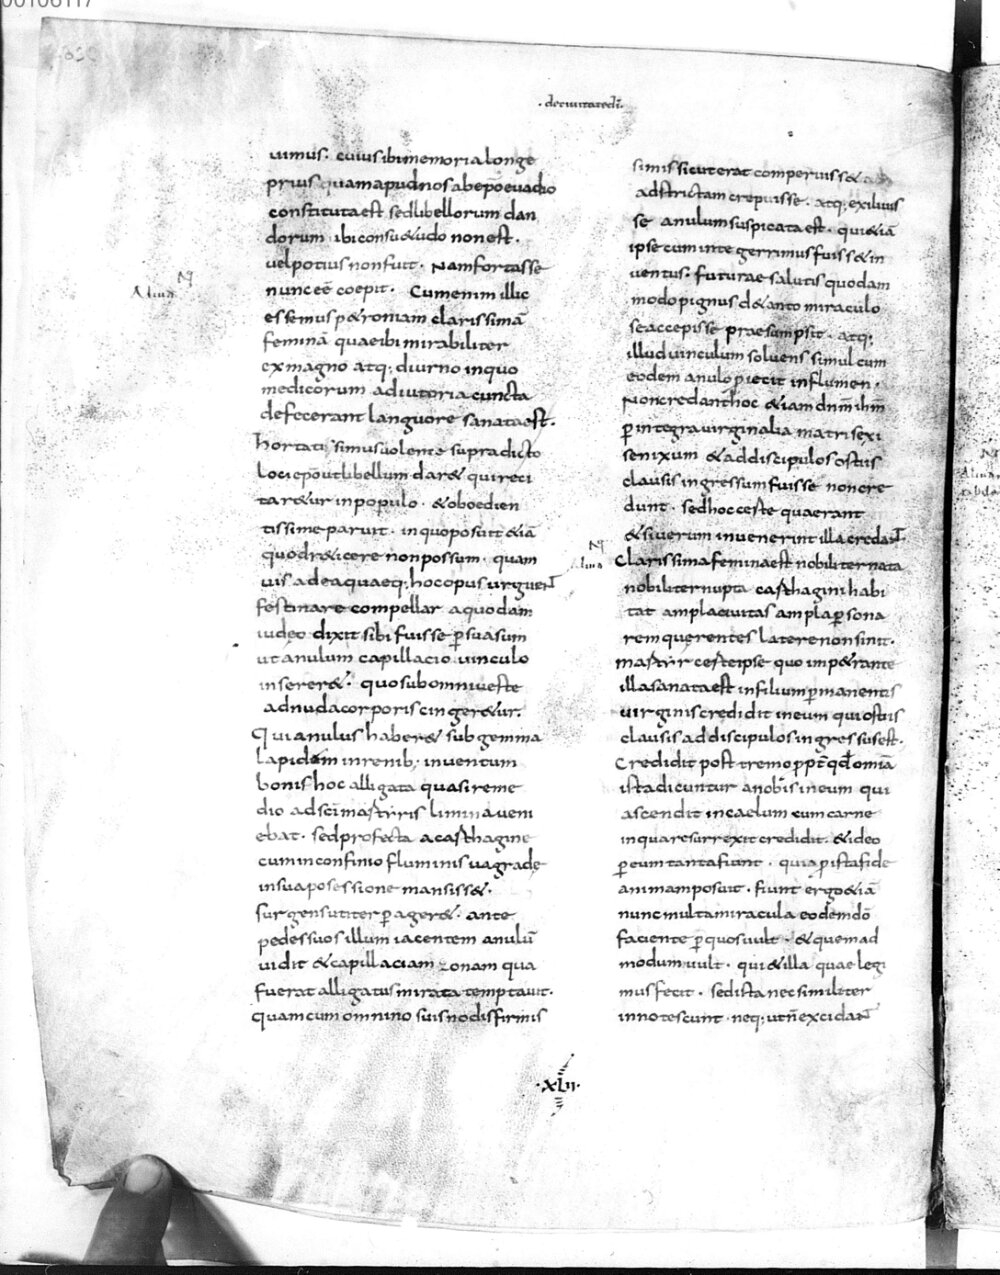 00106117
·deciuitatedi·
uimus· cuiusibimemorialonge
priusquamapudnosabepōeuadio
constitutaest sedlibellorum dan
dorum ibiconsu&udo nonest·
uelpotiusnonfuit· Namfortasse
nunceē coepit· Cumenim illic
essemusp&roniam clarissimā
feminā quaeibimirabiliter
exmagno atq; diurno inquo
medicorum adiutoria cuncta
defecerant languore sanataest·
hortati simusuolente supradicto
lociepōutlibellum dar& quireci
tar&ur inpopulo· &oboedien
tissimeparuit· inquoposuit&iā
quodr&icere nonpossum· quam
uis adeaquaeq; hocopusurguent
festinare compellar aquodam
iudeo dixit sibi fuisse p̄suasum
utanulum capillacio uinculo
inserer&· quosubomniueste
adnudacorporiscinger&ur·
Quianulus haber& subgemma
lapidem inrenib; inuentum
bouis hoc alligata quasireme
dio adscīmartyris liminaueni
ebat· sedprofecta acarthagine
cuminconfinio fluminisuagrade
insuaposessione mansiss&·
surgensutiterp̄ager&· ante
pedessuosillum iacentem anulū
uidit &capillaciam zonam qua
fuerat alligatusmirata temptauit·
quamcumomnino suisnodisfirmis
simissicuterat comperiiss&
adstrictam crepuisse· atq; exiliuis
se anulumsuspicataest· qui&iā
ipsecumintegerrimusfuiss&in
uentus· futurae salutis quodam
modopignus d&anto miraculo
seaccepisse praesumpsit· atq;
illuduinculum soluens simul cum
eodem anulo piecit influmen·
Noncredanthoc &iamdn̄mihm̄
p̄integrauirginalia matrisexi
senixum &addiscipulosostiis
clausisingressumfuisse noncre
dunt· sedhoccerte quaerant
&siuerum inuenerint illacredant
Clarissimafeminaest nobiliternata
nobiliternupta carthaginihabi
tat amplaciuitas amplap̄sona
remquerentes laterenonsinit·
martyr certeipse quo imp&rante
illasanataest infiliump̄manentis
uirginiscredidit ineum quiostiis
clausis addiscipulosingressusest·
Credidit postremoppt̄qd̄omīa
istadicuntur anobisineum qui
ascendit incaelum cumcarne
inquaresurrexitcredidit· &ideo
p̄eumtantafiunt· quiap̄istafide
animamposuit· fiunt ergo&iā
nuncmultamiracula eodemdō
faciente p̄quosuult· &quemad
modum uult· qui&illa quaelegi
musfecit· sedistanecsimiliter
innotescunt· neq; utn̄excidant
·XLII·